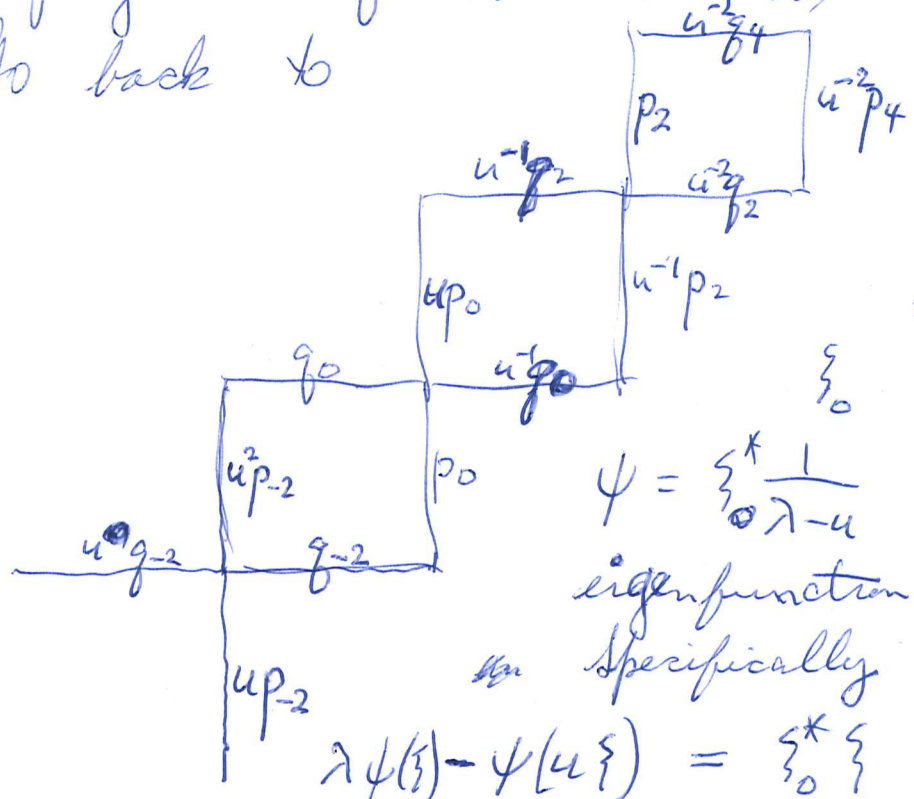 back to
u⁻²q₄
p₂
u⁻²p₄
u⁻¹q₂
u⁻²q₂
up₀
u⁻¹p₂
q₀
u⁻¹q₀
ξ₀
u²p₋₂
p₀
ψ = ξ₀* 1/(λ-u)
u q₋₂
q₋₂
eigenfunction
up₋₂
specifically
λψ(ξ) - ψ(uξ) = ξ₀* ξ